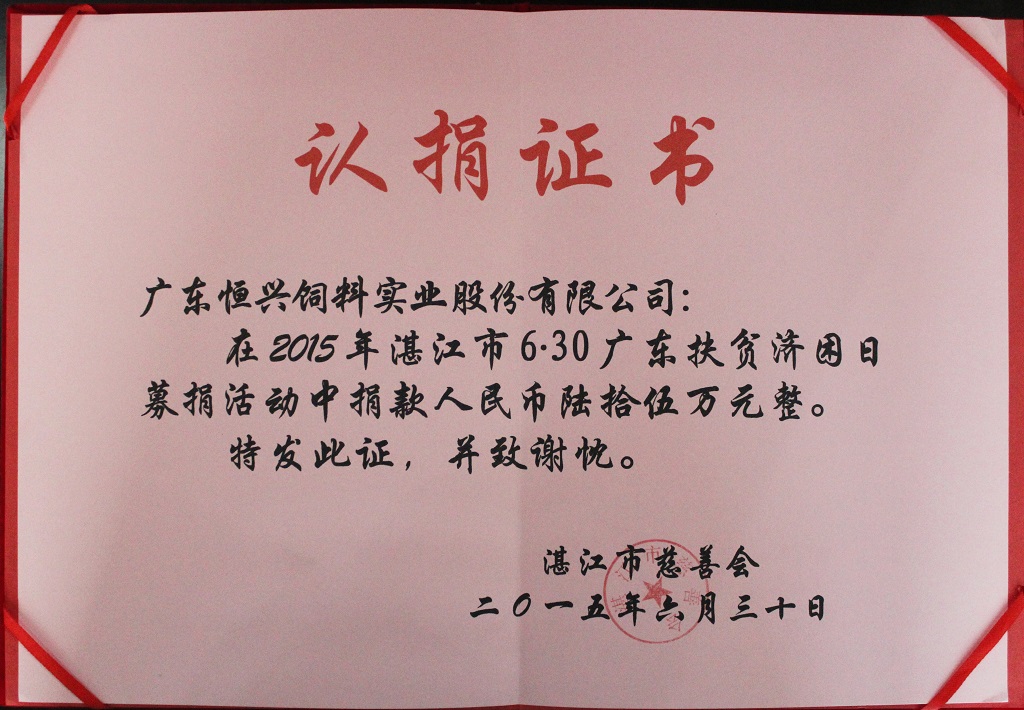 认捐证书
广东恒兴饲料实业股份有限公司：
在2015年湛江市6·30广东扶贫济困日
募捐活动中捐款人民币陆拾伍万元整。
特发此证，并致谢忱。
湛江市慈善会
二0一五年六月三十日
湛江市慈善会